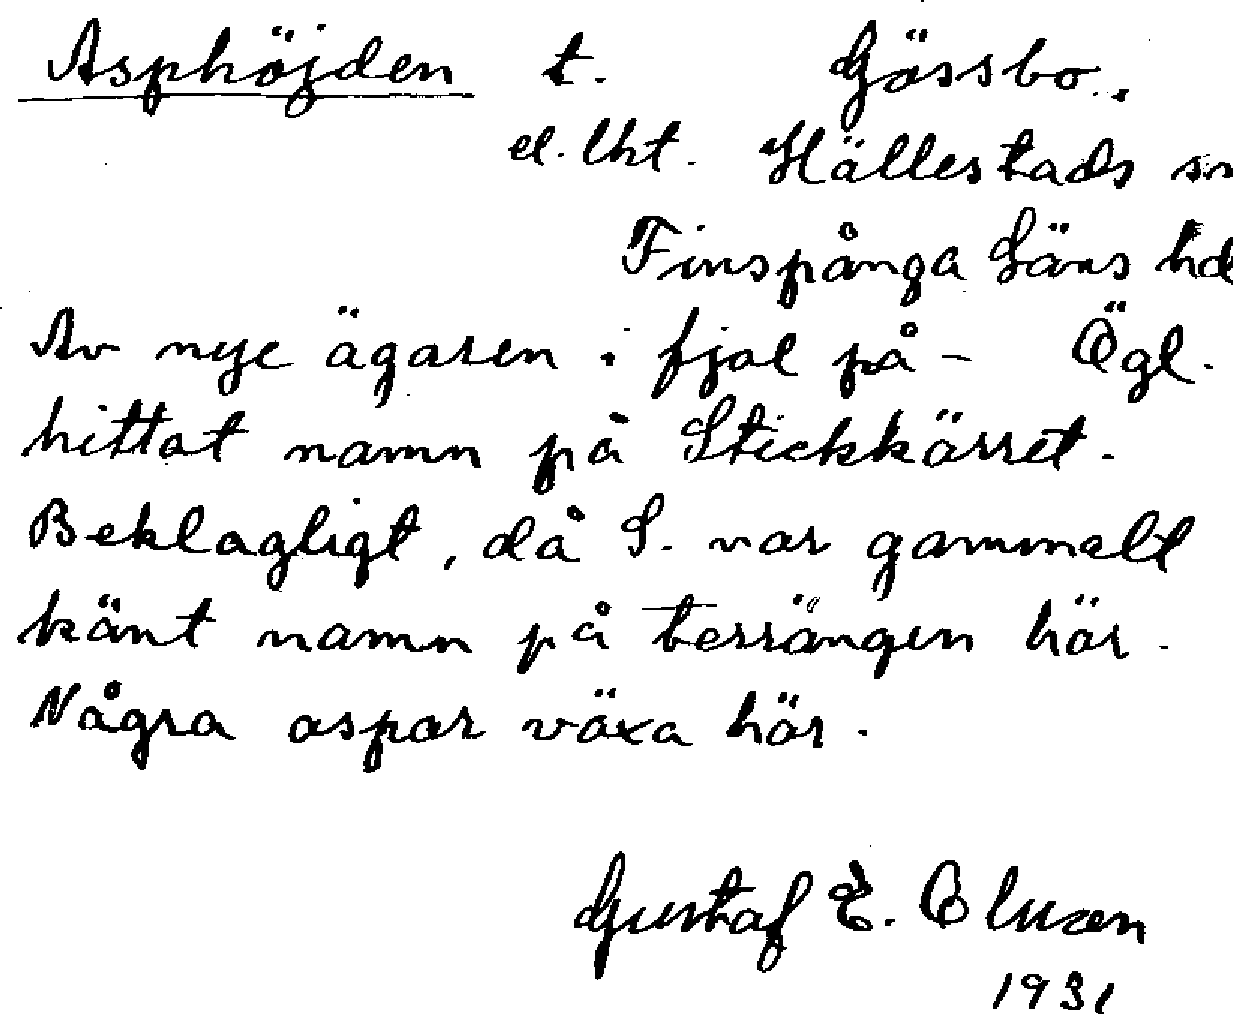 Asphöjden t. Gässbo.
el. lht. Hällestads sn
Finspånga Läns hd
Av nye ägaren i fjol på- Ögl.
hittat namn på Stickkärret.
Beklagligt, då S. var gammalt
känt namn på terrängen här.
Några aspar växa här.
Gustaf E. Olusen
1931